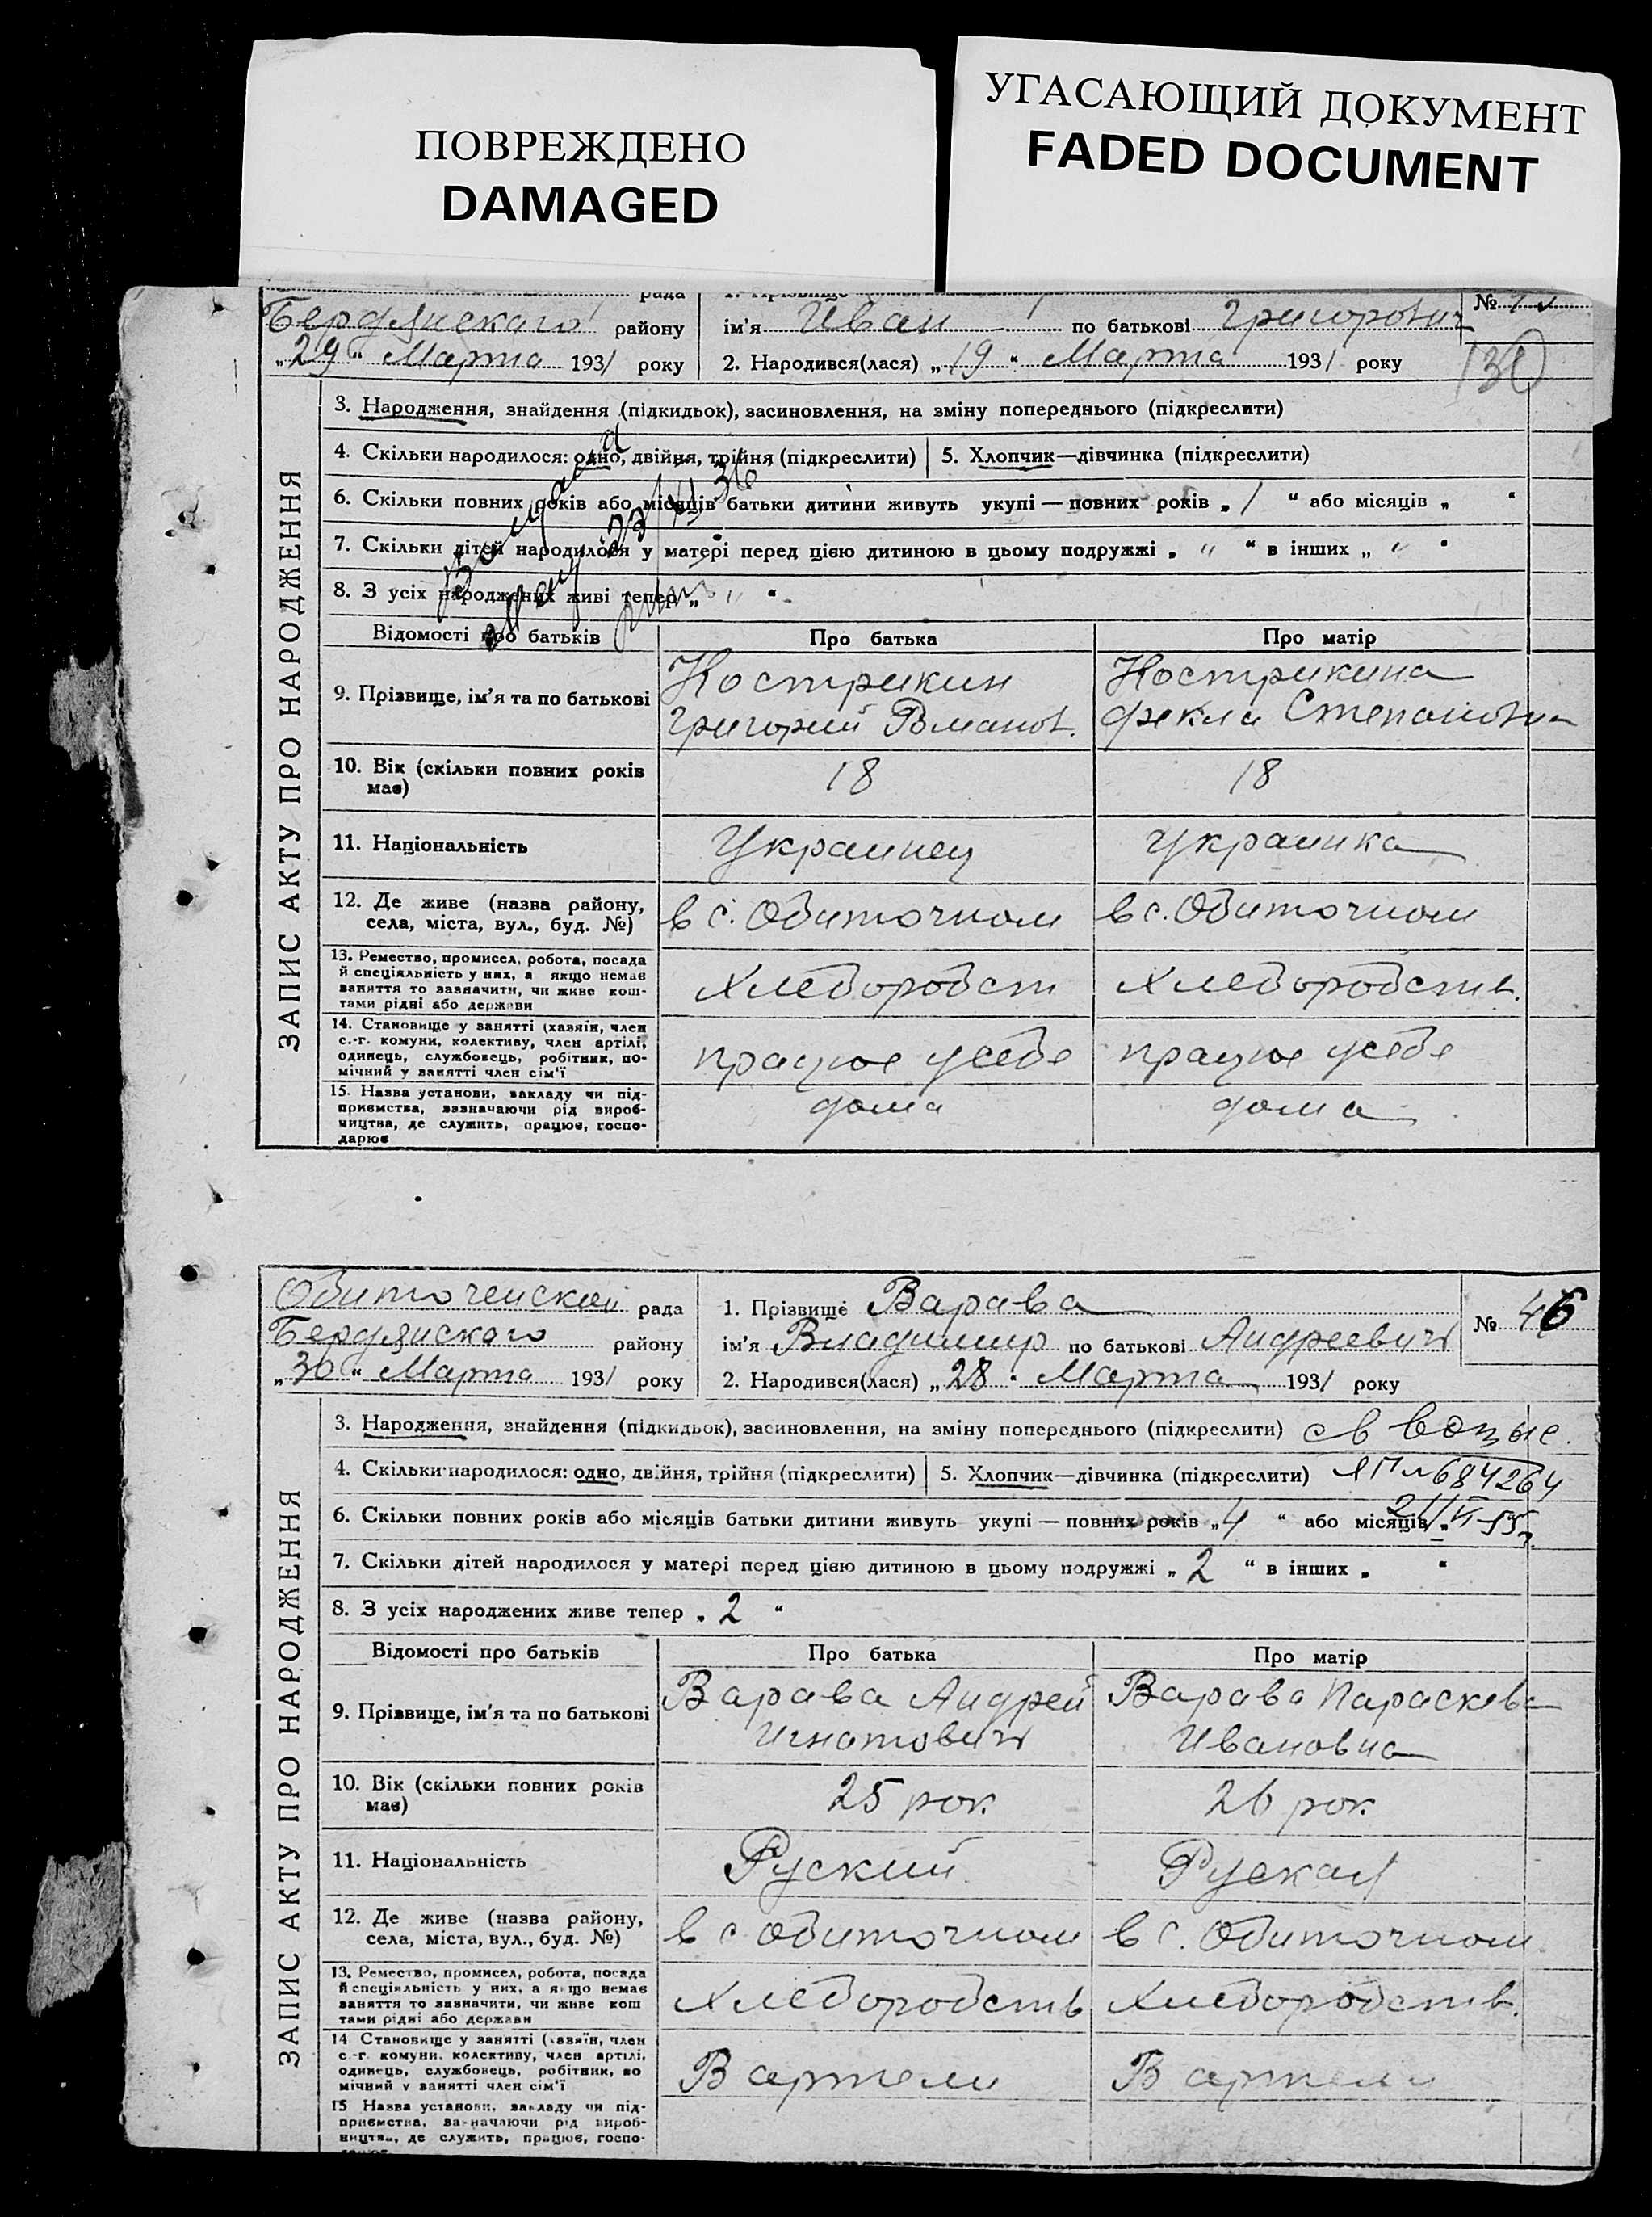 ПОВРЕЖДЕНО
DAMAGED
УГАСАЮЩИЙ ДОКУМЕНТ
FADED DOCUMENT
рада
1. Прізвище
№
Бердянского району
ім'я Иван по батькові Григорович
"29" Марта 1931 року
2. Народився(лася) „19" Марта 1931 року
ЗАПИС АКТУ ПРО НАРОДЖЕННЯ
3. Народження, знайдення (підкидьок), засиновлення, на зміну попереднього (підкреслити)
4. Скільки народилося: одно, двійня, трійня (підкреслити)
5. Хлопчик—дівчинка (підкреслити)
6. Скільки повних років або місяців батьки дитини живуть укупі — повних років „1" або місяців „ "
7. Скільки дітей народилося у матері перед цією дитиною в цьому подружжі „ " " в інших „ " "
8. З усіх народжених живі тепер „ " "
Відомості про батьків
Про батька
Про матір
9. Прізвище, ім'я та по батькові
Кострикин
Григорий
Кострикина
Фекла Степановна
10. Вік (скільки повних років має)
18
18
11. Національність
Украинец
Украинка
12. Де живе (назва району,
села, міста, вул., буд. №)
в с. Обиточном
в с. Обиточном
13. Ремество, промисел, робота, посада
й спеціяльність у них, а якщо немає
заняття то зазначити, чи живе кош-
тами рідні або держави
Хлебородст
Хлебородств.
14. Становище у занятті (хазяїн, член
с.-г. комуни, колективу, член артілі,
одинець, службовець, робітник, по-
мічний у занятті член сім'ї
працює у себе
працює у себе
15. Назва установи, закладу чи під-
приємства, зазначаючи рід вироб-
ництва, де служить, працює, госпо-
дарює
дома
дома
Обиточенской рада
1. Прізвище Варава
№ 46
Бердянского району
ім'я Владимир по батькові Андреевич
"30" Марта 1931 року
2. Народився(лася) „28" Марта 1931 року
ЗАПИС АКТУ ПРО НАРОДЖЕННЯ
3. Народження, знайдення (підкидьок), засиновлення, на зміну попереднього (підкреслити)
4. Скільки народилося: одно, двійня, трійня (підкреслити)
5. Хлопчик—дівчинка (підкреслити)
684264
6. Скільки повних років або місяців батьки дитини живуть укупі — повних років „4" або місяців „
7. Скільки дітей народилося у матері перед цією дитиною в цьому подружжі „2" в інших „ "
8. З усіх народжених живе тепер „2"
Відомості про батьків
Про батька
Про матір
9. Прізвище, ім'я та по батькові
Варава Андрей
Игнатович
Варава Параскева
Ивановна
10. Вік (скільки повних років
має)
25 рок.
26 рок
11. Національність
Руский
Руская
12. Де живе (назва району,
села, міста, вул., буд. №)
в с Обиточном
в с. Обиточном
13. Ремество, промисел, робота, посада
й спеціяльність у них, а якщо немає
заняття то зазначити, чи живе кош
тами рідні або держави
Хлебородств
Хлебородств.
14 Становище у занятті (хазяїн, член
с.-г. комуни. колективу, член артілі,
одинець, службовець, робітник, по
мічний у занятті член сім'ї
В артели
В артели
15 Назва установи, закладу чи під-
приємства, зазначаючи рід вироб-
ництва, де служить, працює, госпо-